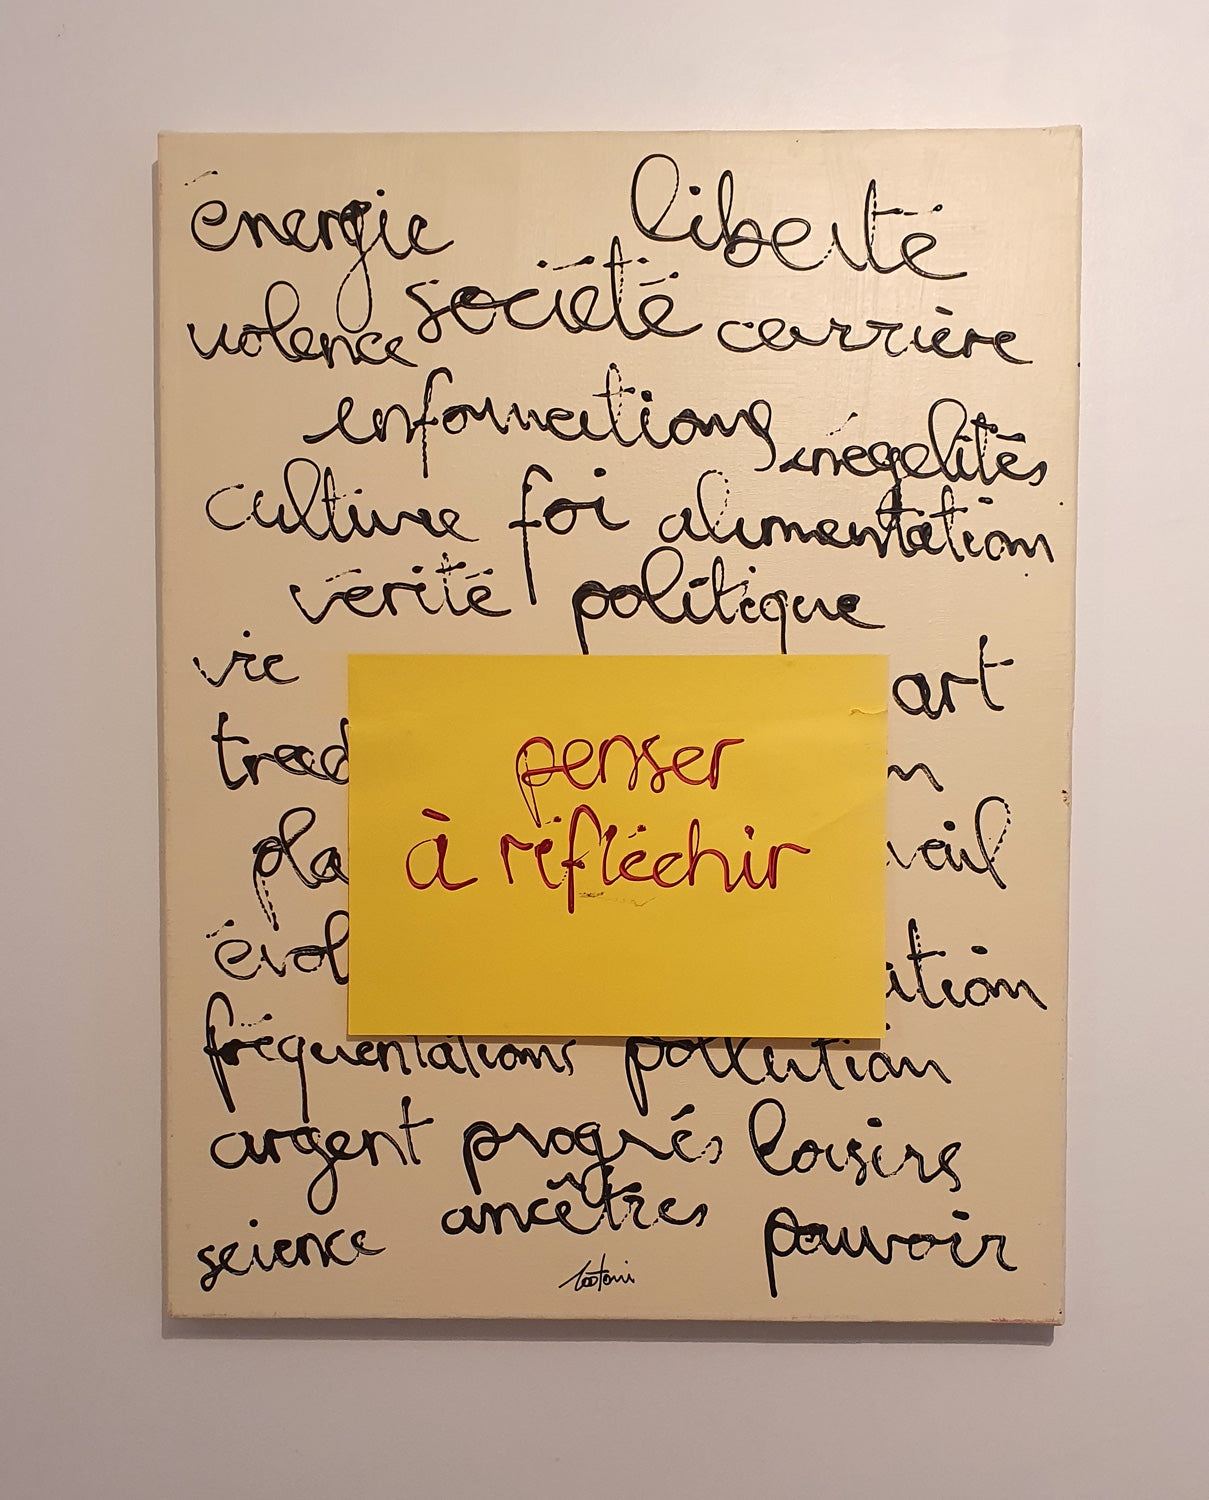 énergie liberté
violence société carrière
informations inégalités
culture foi alimentation
vérité politique
vie art
trad n
penser
à réfléchir
pla vail
évol ution
fréquentations pollution
argent progrés loisirs
science ancêtres pouvoir